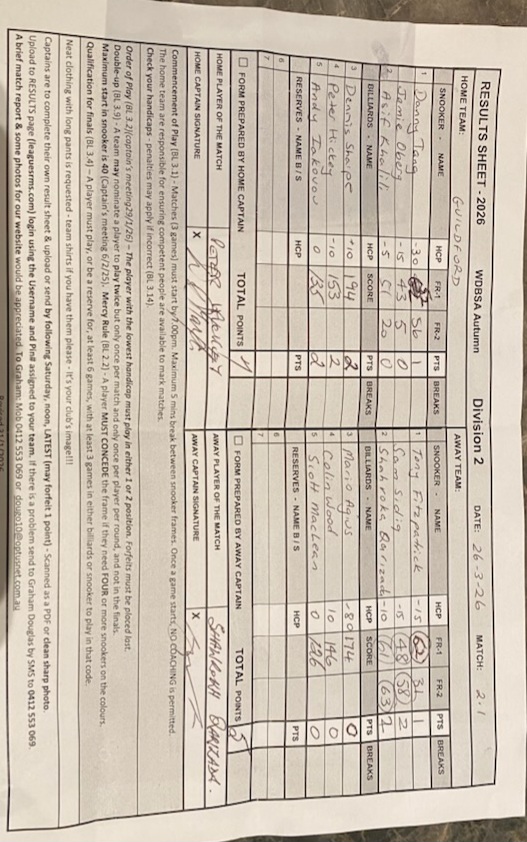 RESULTS SHEET - 2026 WDBSA Autumn Division 2 DATE: 26-3-26 MATCH: 2.1
HOME TEAM: GUILDFORD AWAY TEAM:
SNOOKER - NAME HCP FR-1 FR-2 PTS BREAKS SNOOKER NAME HCP FR-1 FR-2 PTS BREAKS
1 Danny Tang -30 56 1 1 Tony Fitzpatrick -15 62 31 1
2 Jamie Oberg -15 43 5 0 Sam Sidiq -15 48 58 2
2 Asif Khalil -5 51 20 0 2 Shahrokh -10 61 63 2
BILLIARDS - NAME HCP SCORE PTS BREAKS BILLIARDS - NAME HCP SCORE PTS BREAKS
3 Dennis Sharpe +10 194 2 3 Mario Agius -80 174 0
4 Peter Hickey -10 153 2 4 Colin Wood 10 146 0
5 Andy Iakovou 0 135 2 5 Scott MacLean 0 126 0
RESERVES - NAME B / S HCP PTS RESERVES - NAME B / S HCP PTS
6 6
7 7
☐ FORM PREPARED BY HOME CAPTAIN TOTAL POINTS ☐ FORM PREPARED BY AWAY CAPTAIN TOTAL POINTS 5
HOME PLAYER OF THE MATCH PETER AWAY PLAYER OF THE MATCH SHAHROKH
HOME CAPTAIN SIGNATURE X AWAY CAPTAIN SIGNATURE X
Commencement of Play (BL 3.1) - Matches (3 games) must start by 7.00pm. Maximum 5 mins break between snooker frames. Once a game starts, NO COACHING is permitted.
The home team are responsible for ensuring competent people are available to mark matches.
Check your handicaps - penalties may apply if incorrect (BL 3.14).
Order of Play (BL 3.2)(captain's meeting29/1/26) - The player with the lowest handicap must play in either 1 or 2 position. Forfeits must be placed last.
Double-up (BL 3.9) - A team may nominate a player to play twice but only once per match and only once per player per round, and not in the finals.
Maximum start in snooker is 40 (Captain's meeting 6/2/25). Mercy Rule (BL 2.2) - A player MUST CONCEDE the frame if they need FOUR or more snookers on the colours.
Qualification for finals (BL 3.4) – A player must play, or be a reserve for, at least 6 games, with at least 3 games in either billiards or snooker to play in that code.
Neat clothing with long pants is requested - team shirts if you have them please - It's your club's image!!!
Captains are to complete their own result sheet & upload or send by following Saturday, noon, LATEST (may forfeit 1 point) - Scanned as a PDF or clean sharp photo.
Upload to RESULTS page (leaguesrms.com) login using the Username and Pin# assigned to your team. If there is a problem send to Graham Douglas by SMS to 0412 553 069.
A brief match report & some photos for our website would be appreciated. To Graham: Mob 0412 553 069 or dougo10@optusnet.com.au